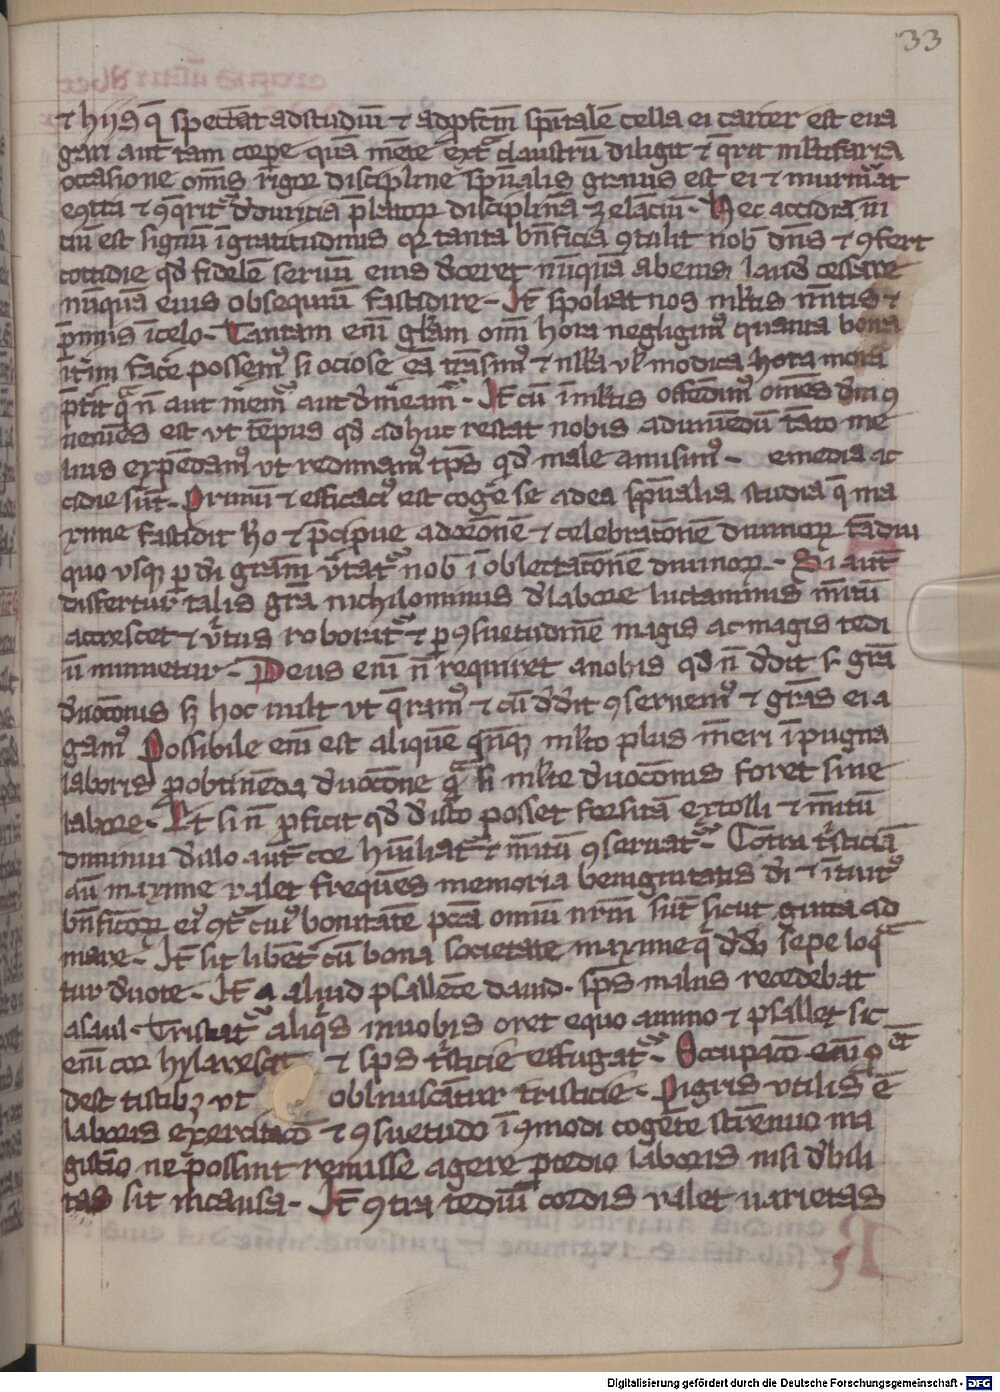 33
⁊ hijs q̄ spectāt ad studiū ⁊ ad ꝓfectū spūalē cella ei carcer est eua
gari aut tam corpe quā mēte extᵃ claustrū diligit ⁊ q̄rit multifaria
occasione om̄is rigor discipline spūalis grauis est ei ⁊ murmurat
⁊ ꝯq̄rit᷑ de duricia p̄latoꝝ disciplinā zelanciū
ciū est signū īgratitudinis qꝛ tanta bn̄ficia ꝯtulit nob̄ dn̄s ⁊ ꝯfert
cottidie qd̄ fidelē seruū eius deceret nūquā ab eius laude cessare
nūquā eius obsequiū fastidire It̄ spoliat nos multis meritis ⁊
p̄mijs ī celo Tantam em̄ gl̄am om̄i hora negligimꝰ quanta bona
it̄im facere possemꝰ si ociose eā trāsimꝰ ⁊ nulla vl̓ modica hora
It̄ cū ī multis offēdimꝰ
est vt tēpus qd̄ adhuc restat nobis ad tāto me
lius expēdamꝰ vt redimamꝰ tp̄s qd̄ male amisimꝰ emedia ac
cidie sūt Primū ⁊ efficaciꝰ est cogere se ad ea spūalia studia q̄ ma
xime fastidit hō ⁊ p̄cipue ad orōnē ⁊ celebratōnē diuinoꝝ tādiu
quo vsqꝫ ꝑ dei grām v̓tat᷑ nob̄ ī oblectatōnē diuinoꝝ Si aut̄
differtur talis grā nichilominus de labore luctaminis meritū
accrescet ⁊ v̓tus roborat᷑ ⁊ ꝑ ꝯsuetudinē magis ac magis tedi
ū minuetur Deus em̄ nō requiret a nobis qd̄ nō dedit s̄ grā
deuocōnis sꝫ hoc vult vt q̄ramꝰ ⁊ cū dederit ꝯseruemꝰ ⁊ grās ei a
gamꝰ Possibile em̄ est aliquē qn̄qꝫ multo plus mereri ī pugna
laboris ꝓ obtinēda deuocōne qᵃ si multe deuocōnis foret sine
labore Et si nō ꝓficit qd̄ de isto posset forsitā extolli ⁊ meritū
diminui de illo aut̄ cor humiliat᷑ ⁊ meritū ꝯseruat᷑ Contra tristiciā
aūt maxime valet frequēs memoria benignitatis dei ⁊ ītuitꝰ
bn̄ficioꝝ eiꝰ cuiꝰ bonitatē pccā omniū nr̄m sūt sicut gutta ad
mare It̄ sit libēt᷑ cū bona societate maxime q̄ de deo sepe loq̄
tur deuote It̄ aliud psallēte dauid sp̄s malus recedebat
a saul Tristat᷑ aliqͥs in uobis oret equo animo ⁊ psallet sic
em̄ cor hylarescit ⁊ sp̄s tristicie effugat᷑ Occupatō em̄ ꝓ et̄
dest tristibꝫ vt obliuiscātur tristicie Pigris vtilis ē
laboris exercitacō ⁊ ꝯsuetudo ī ꝯmodi cogēte strēnuo ma
gistro ne possint remisse agere p̄ tedio laboris nisi debili
tas sit in causa It̄ ꝯtra tediū cordis valet varietas
Digitalisierung gefördert durch die Deutsche Forschungsgemeinschaft - DFG